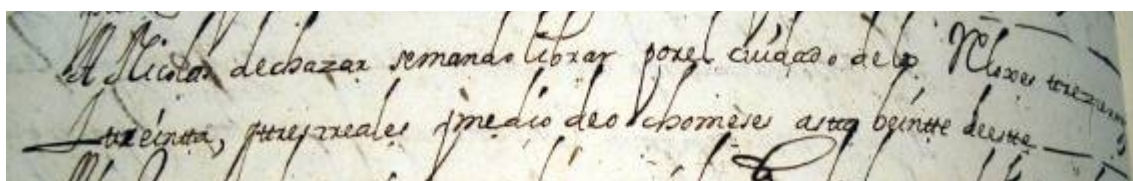 A Nicolas de chazar se mando librar por el cuidado de lo Reloxes trezientos
treintta, y ttres reales y medio de ocho meses astta beintte de este